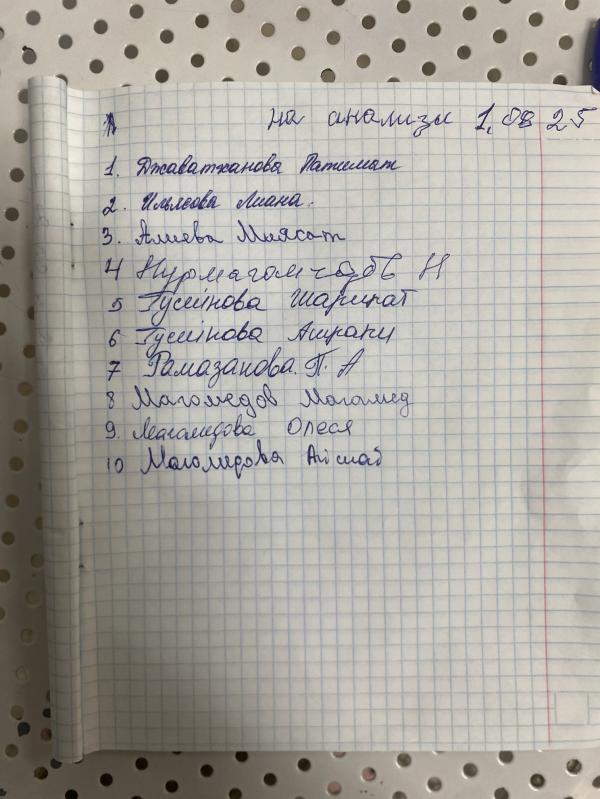 на анализы 1.08 25
1. Джаватханова Патимат
2. Ильясова Лиана.
3. Алиева Миясат
4 Нурмагомедов Н
5 Гусейнова Шарипат
6 Гусейнова
7 Рамазанова. П. А
8 Магомедов Магомед
9. Магомедова Олеся
10 Магомедова